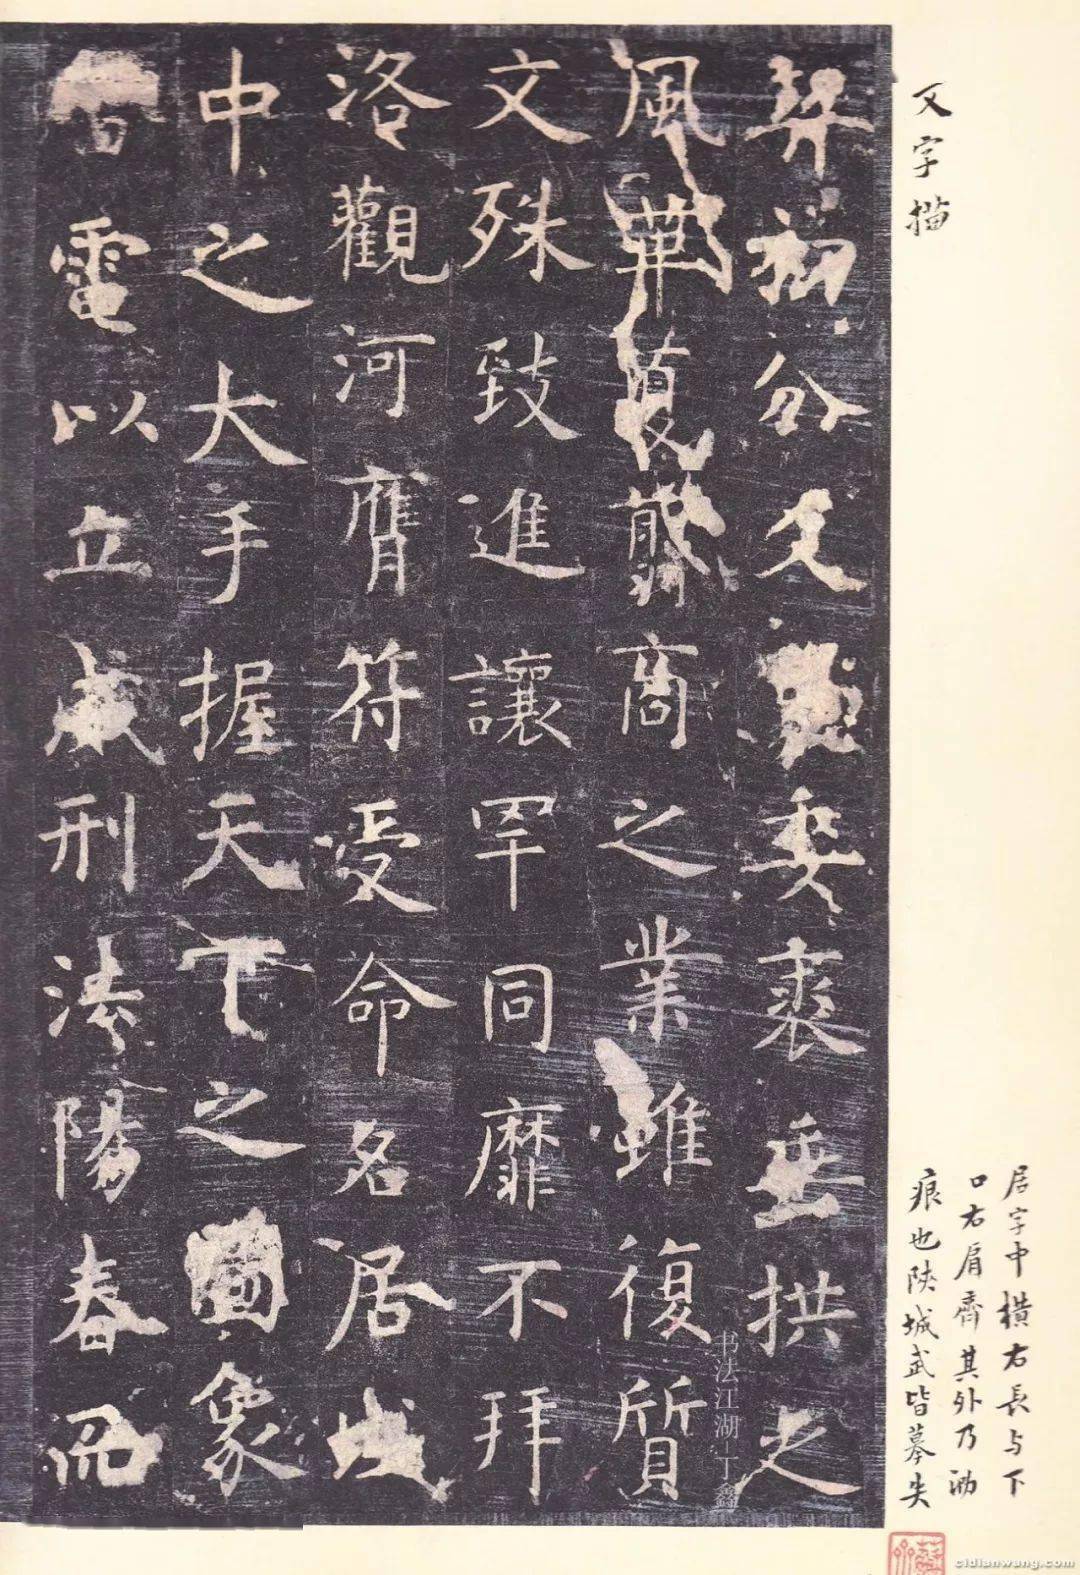 爻字描
居字中橫右長与下
口右肩齊其外乃泐
痕也陝城武皆摹失
契初分爻象委裘垂拱之
風革夏翦商之業雖復質
文殊致進讓罕同靡不拜
洛觀河膺符受命名居域
中之大手握天下之圖象
雷電以立威刑法陽春而
书法江湖—丁鑫
cidianwang.com